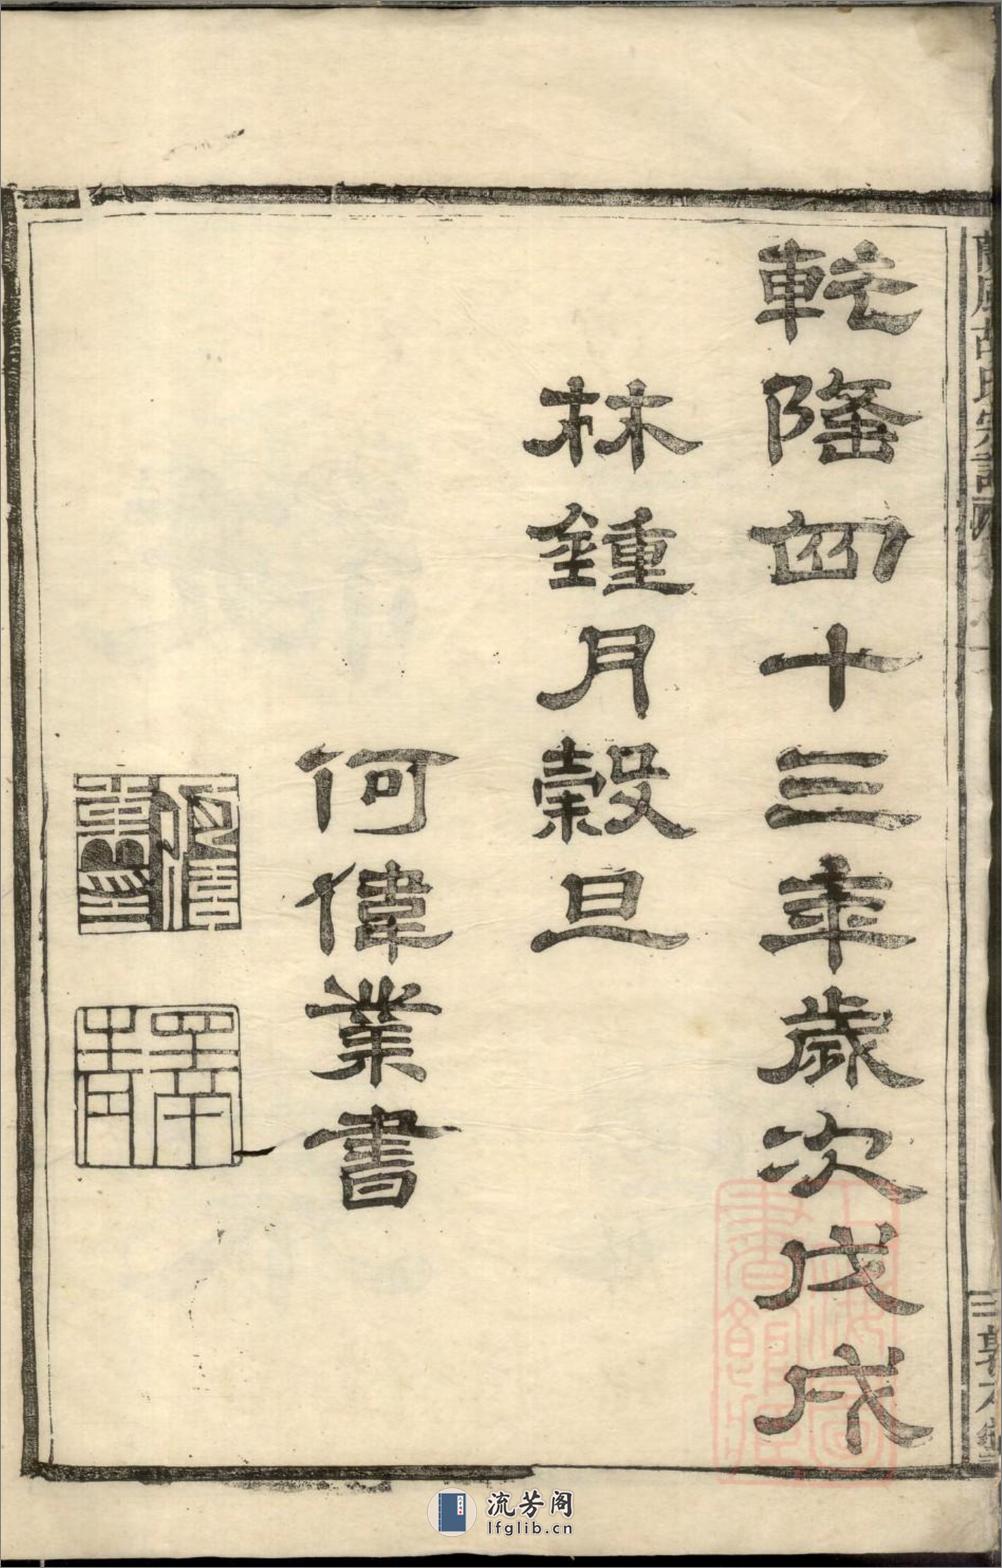 乾隆四十三年歲次戊戌
林鐘月穀旦
何偉業書
流芳阁
lfglib.cn